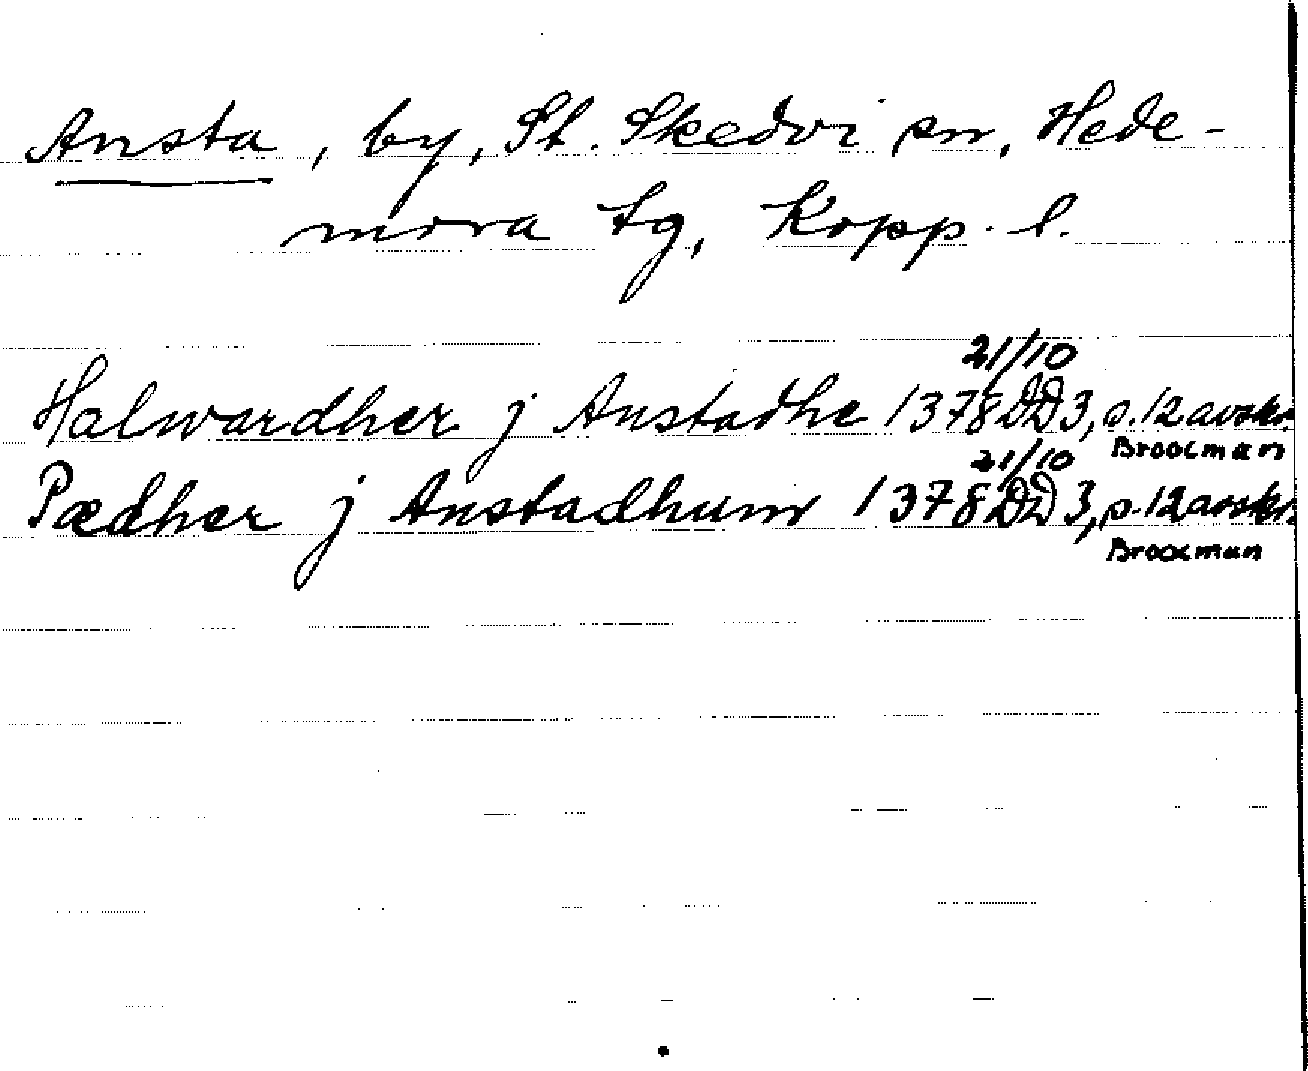 Ansta, by, St. Skedvi sn, Hede-
mora tg, Kopp. l.
21/10
Halwardher j Anstadhe 1378 DD 3, s. 12 avskr.
Broocman
21/10
Pædher j Anstadhum 1378 DD 3, s. 12 avskr.
Broocman